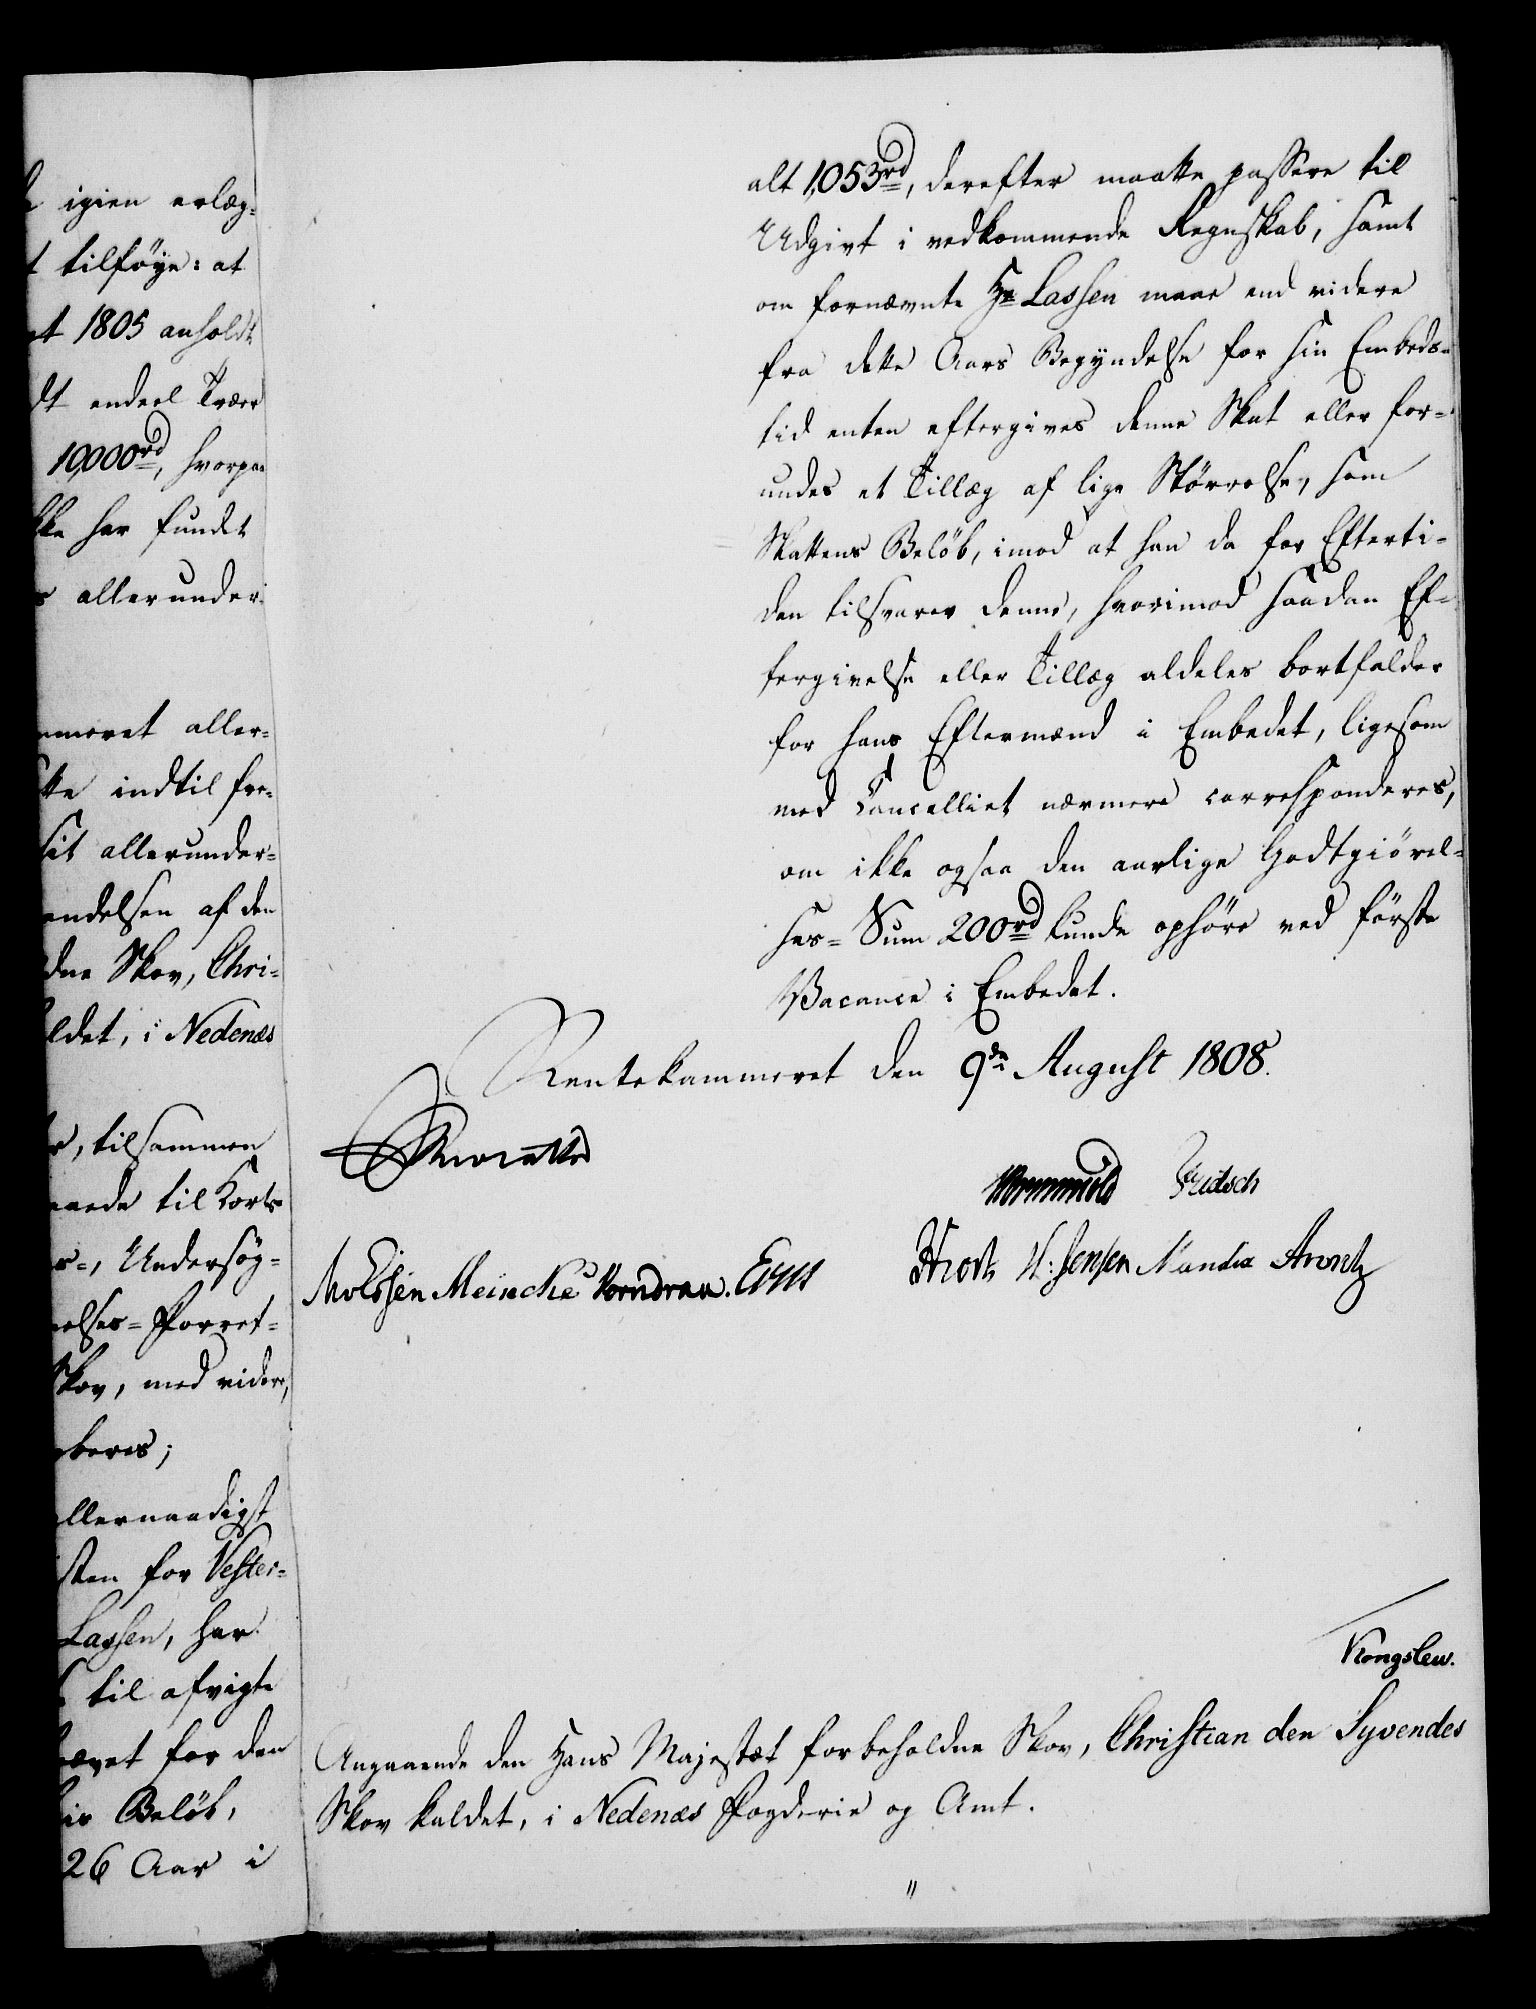 igien erlæg-
t tilföye: at
et 1805 anholdt
dt endeel Tvær
10,000rd, hvorpaa
kke har fundet
s allerunder-
mmeret aller-
tte indtil fre-
sit allerunder-
endelsen af den
dne Skov, Chri-
ldet, i Nedenæs
r, tilsammen
aaede til Kort-
s-, Undersög-
elses-Forret-
Skov, med videre,
beres;
llernaadigst
sten for Vester-
Lassen, har
til afvigte
ævet for den
Belöb,
26 Aar i
alt 1,053rd, derefter maatte passere til
Udgivt i vedkommende Regnskab, samt
om fornævnte Hr Lassen maae end videre
fra dette Aars Begyndelse for sin Embeds-
tid enten eftergives denne Skat eller for-
undes et Tillæg af lige Störrelse, som
Skattens Belöb, imod at han da for Efterti-
den tilsvarer denne, hvorimod saadan Ef-
tergivelse eller Tillæg aldeles bortfalder
for hans Eftermænd i Embedet, ligesom
med Cancelliet nærmere corresponderes,
om ikke ogsaa den aarlige Godtgiörel-
ses-Sum 200rd kunde ophöre ved förste
Vacance i Embedet.
Rentekammeret den 9de August 1808.
Wormskiold Fridsch
Meincke Vorndran.
Knorh H: Jensen Arentz
Kongslew.
Angaaende den Hans Majestæt forbeholdne Skov, Christian den Syvendes
Skov kaldet, i Nedenæs Fogderie og Amt.
"